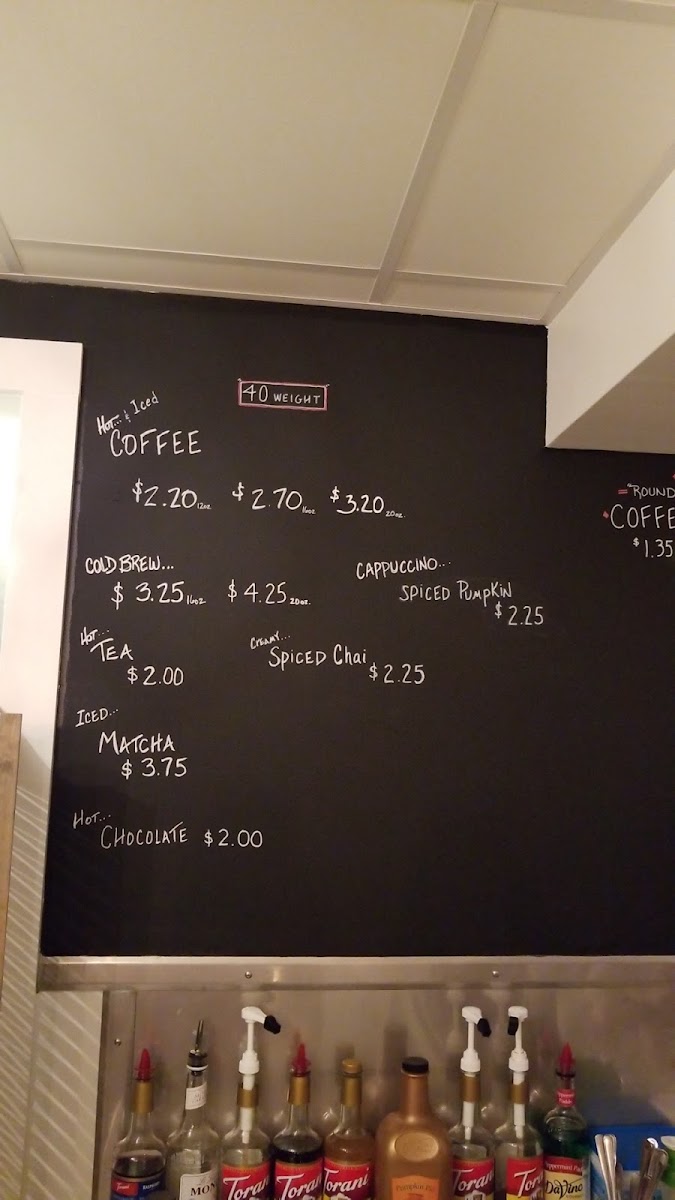 40 WEIGHT
HOT... & Iced
COFFEE
$2.20 12oz. $2.70 16oz $3.20 20oz.
COLD BREW...
$3.25 16oz $4.25 20oz.
CAPPUCCINO...
SPICED PUMPKIN
$2.25
HOT...
TEA
$2.00
CREAMY...
SPICED Chai
$2.25
ICED...
MATCHA
$3.75
HOT...
CHOCOLATE $2.00
"ROUND
COFFE
$1.35
Torani
MON
Torani
Torani
Torani
Pumpkin Pie
Torani
Torani
Peppermint
DaVinci